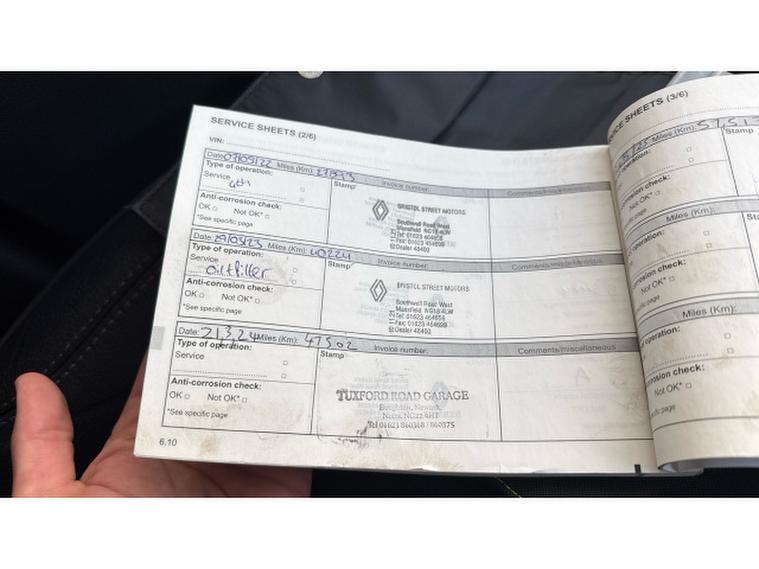 SERVICE SHEETS (2/6)
VIN:
Date: Miles (Km):
Type of operation: Stamp Invoice number: Comments/miscellaneous
Service
4th
Anti-corrosion check:
OK Not OK*
*See specific page
BRISTOL STREET MOTORS
Southwell Road West
Mansfield NG18 4LW
Tel: 01623 464656
Fax: 01623 464699
Dealer 48400
Date: 29/03/23 Miles (Km): 40224
Type of operation: Stamp Invoice number:
Service
oil+filter
Anti-corrosion check:
OK Not OK*
*See specific page
BRISTOL STREET MOTORS
Southwell Road West
Mansfield NG18 4LW
Tel: 01623 464656
Fax: 01623 464699
Dealer 48400
Date: 21.3.24 Miles (Km): 47502
Type of operation: Stamp Invoice number: Comments/miscellaneous
Service
Anti-corrosion check:
OK Not OK*
*See specific page
TUXFORD ROAD GARAGE
Boughton, Newark
Notts, NG22 9HT
Tel 01623 860368 / 860375
6.10
SERVICE SHEETS (3/6)
Miles (Km):
operation: Stamp
corrosion check:
Not OK*
specific page
Miles (Km):
operation:
corrosion check:
Not OK*
page
Miles (Km):
operation:
corrosion check:
Not OK*
page